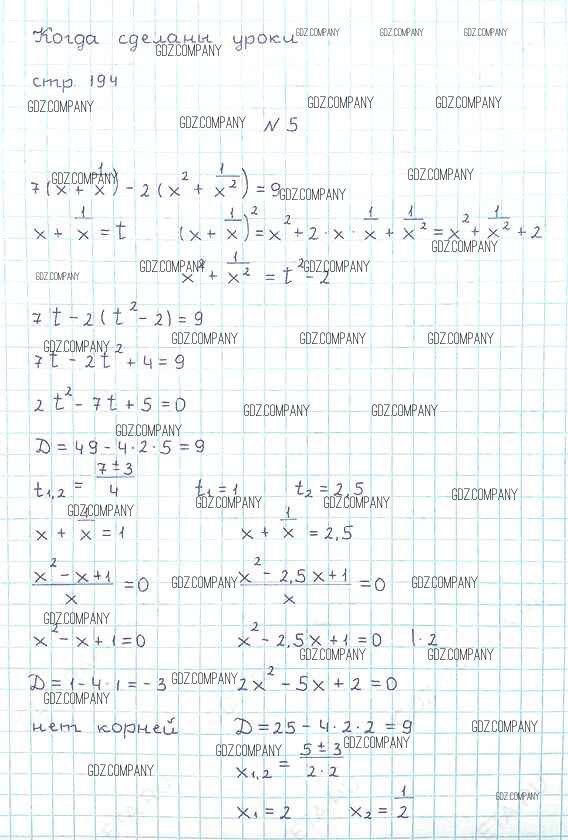 Когда сделаны уроки
GDZ.COMPANY GDZ.COMPANY GDZ.COMPANY GDZ.COMPANY
стр. 194
GDZ.COMPANY GDZ.COMPANY GDZ.COMPANY
GDZ.COMPANY N 5
GDZ.COMPANY GDZ.COMPANY
7(x + 1/x) - 2(x² + 1/x²) = 9
GDZ.COMPANY
x + 1/x = t (x + 1/x)² = x² + 2·x·1/x + 1/x² = x² + 1/x² + 2
GDZ.COMPANY
GDZ.COMPANY GDZ.COMPANY GDZ.COMPANY
x² + 1/x² = t² - 2
7t - 2(t² - 2) = 9
GDZ.COMPANY GDZ.COMPANY GDZ.COMPANY GDZ.COMPANY
7t - 2t² + 4 = 9
2t² - 7t + 5 = 0
GDZ.COMPANY GDZ.COMPANY
GDZ.COMPANY
D = 49 - 4·2·5 = 9
t1,2 = (7±3)/4 t1 = 1 t2 = 2,5
GDZ.COMPANY GDZ.COMPANY GDZ.COMPANY GDZ.COMPANY
x + 1/x = 1 x + 1/x = 2,5
(x² - x + 1)/x = 0 (x² - 2,5x + 1)/x = 0
GDZ.COMPANY GDZ.COMPANY
GDZ.COMPANY
x² - x + 1 = 0 x² - 2,5x + 1 = 0 |·2
GDZ.COMPANY GDZ.COMPANY
D = 1 - 4·1 = -3 2x² - 5x + 2 = 0
GDZ.COMPANY GDZ.COMPANY
нет корней D = 25 - 4·2·2 = 9
GDZ.COMPANY
GDZ.COMPANY GDZ.COMPANY GDZ.COMPANY
x1,2 = (5±3)/(2·2)
GDZ.COMPANY
x1 = 2 x2 = 1/2